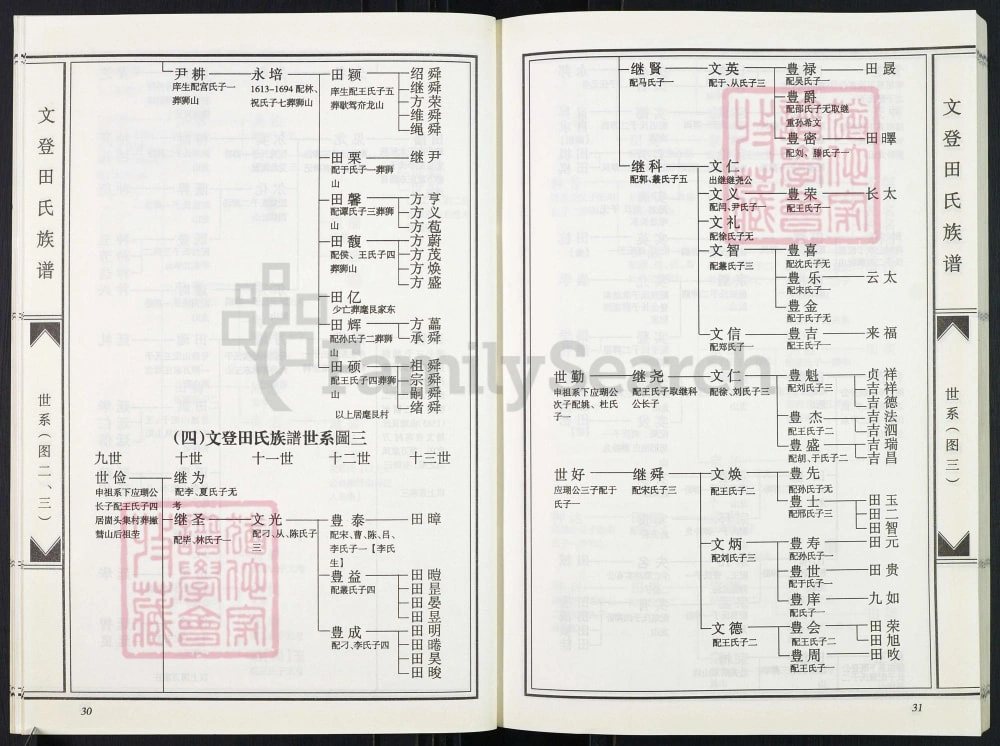 文登田氏族谱
世系（图二、三）
尹耕
庠生配宫氏子一
葬狮山
永培
1613-1694 配林、
祝氏子七葬狮山
田颖
庠生配王氏子五
葬歇驾夼龙山
绍舜
继舜
方荣
维舜
绳舜
田栗
配于氏子一葬狮
山
继尹
田馨
配谭氏子三葬狮
山
方亨
方义
方苞
田馥
配侯、王氏子四
葬狮山
方蔚
方茂
方焕
方盛
田亿
少亡葬麾艮家东
田辉
配孙氏子二葬狮
山
方藟
承舜
田硕
配王氏子四葬狮
山
祖舜
宗舜
嗣舜
绪舜
以上居麾艮村
(四)文登田氏族譜世系圖三
九世 十世 十一世 十二世 十三世
世俭
申祖系下应瑚公
长子配王氏子四
居崮头集村葬撇
彗山后祖茔
继为
配李、夏氏子无
考
继圣
配毕、林氏子一
文光
配刁、从、陈氏子
三
豊泰
配宋、曹、陈、吕、
李氏子一【李氏
生】
田暲
豊益
配叢氏子四
田暟
田昆
田晏
田昱
豊成
配刁、李氏子四
田明
田晻
田昊
田晙
30
继賢
配马氏子一
文英
配于、从氏子三
豊禄
配吴氏子一
田晸
豊爵
配邵氏子无取继
重孙希文
豊密
配刘、滕氏子一
田曎
继科
配郭、叢氏子五
文仁
出继继尧公
文义
配闫、尹氏子一
豊荣
配王氏子一
长太
文礼
配徐氏子无
文智
配叢氏子三
豊喜
配沈氏子无
豊乐
配宋氏子一
云太
豊金
配于氏子无
文信
配郑氏子一
豊吉
配王氏子一
来福
世勤
申祖系下应瑚公
次子配姚、杜氏
子一
继尧
配王氏子取继科
公长子
文仁
配徐、刘氏子三
豊魁
配刘氏子三
贞祥
吉祥
吉德
豊杰
配王氏子二
吉法
吉泗
豊盛
配胡、于氏子二
吉瑞
吉昌
世好
应瑚公三子配于
氏子一
继舜
配宋氏子三
文焕
配王氏子二
豊先
配孙氏子无
豊士
配邢氏子三
田玉
田二
田智
文炳
配刘氏子三
豊寿
配孙氏子一
田元
豊世
配于氏子一
田贵
豊庠
配氏子一
九如
文德
配王氏子二
豊会
配王氏子二
田荣
田旭
豊周
配王氏子一
田收
文登田氏族谱
世系（图三）
31
FamilySearch